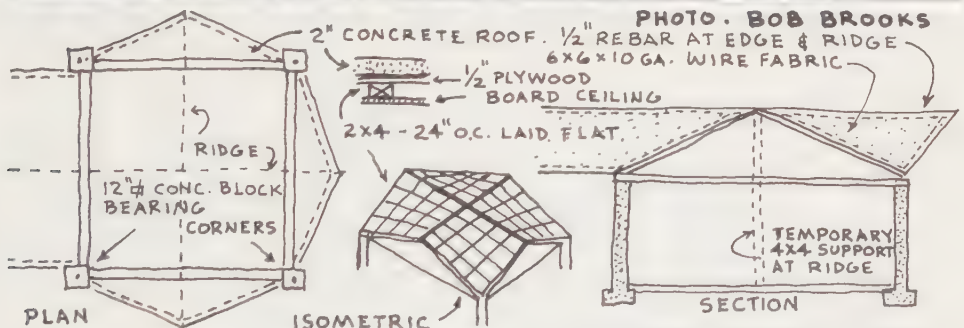 PHOTO. BOB BROOKS
2" CONCRETE ROOF.
1/2" REBAR AT EDGE & RIDGE
6x6x10 GA. WIRE FABRIC
1/2" PLYWOOD
BOARD CEILING
2x4 - 24" O.C. LAID FLAT.
RIDGE
12" CONC. BLOCK
BEARING
CORNERS
TEMPORARY
4x4 SUPPORT
AT RIDGE
PLAN
ISOMETRIC
SECTION